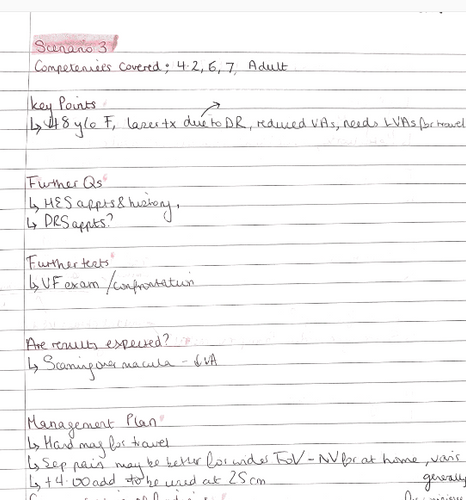 Scenario 3
Competencies Covered; 4.2, 6, 7, Adult
Key Points
↳ 48 y/o F, laser tx due to DR, reduced VAs, needs LVAs for travel
Further Qs
↳ HES appts & history.
↳ DRS appts?
Further tests
↳ VF exam / confrontation
Are results expected?
↳ Scarring over macula - ↓VA
Management Plan
↳ Hand mag for travel
↳ Sep pairs may be better for wider FoV - NV for at home, varis
generally
↳ +4.00 add to be used at 25cm